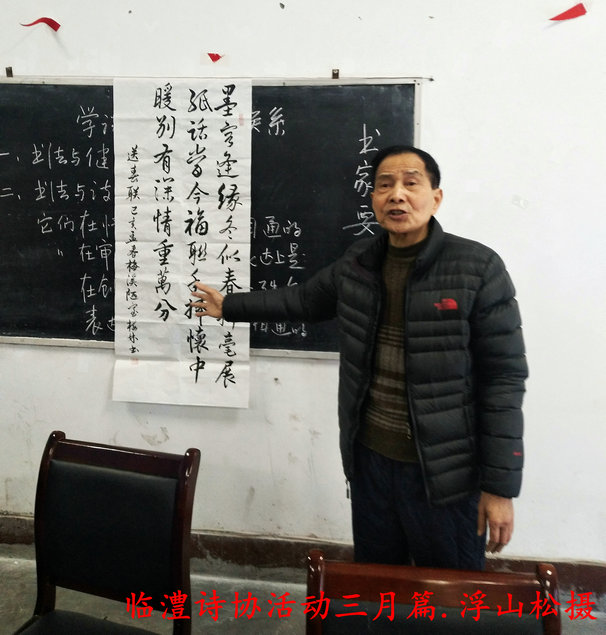 学 系
一、书法与健
二、书法与诗
它们在情 通的
〃 在审 上是
在创
表
书家要
墨客逢緣冬似春揮毫展
紙話當今福聯手捧懷中
暖别有深情重萬分
送春联 己亥孟春梅溪陋室柏林书
临澧诗协活动三月篇.浮山松摄